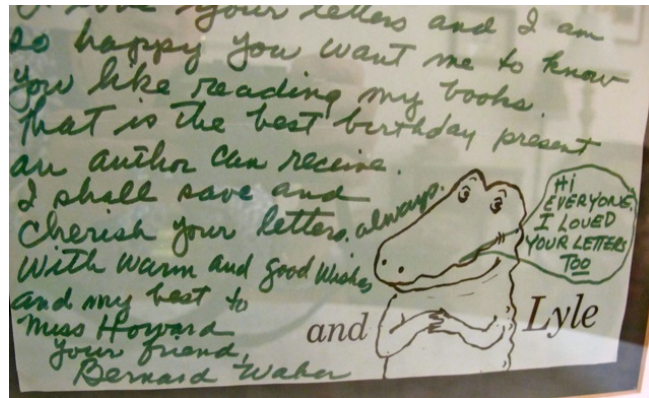 I love your letters and I am
so happy you want me to know
you like reading my books.
That is the best birthday present
an author can receive.
I shall save and
cherish your letters, always.
With warm and good wishes
and my best to
Miss Howard
your friend,
Bernard Waber
and Lyle
Hi
EVERYONE,
I LOVED
YOUR LETTERS
TOO